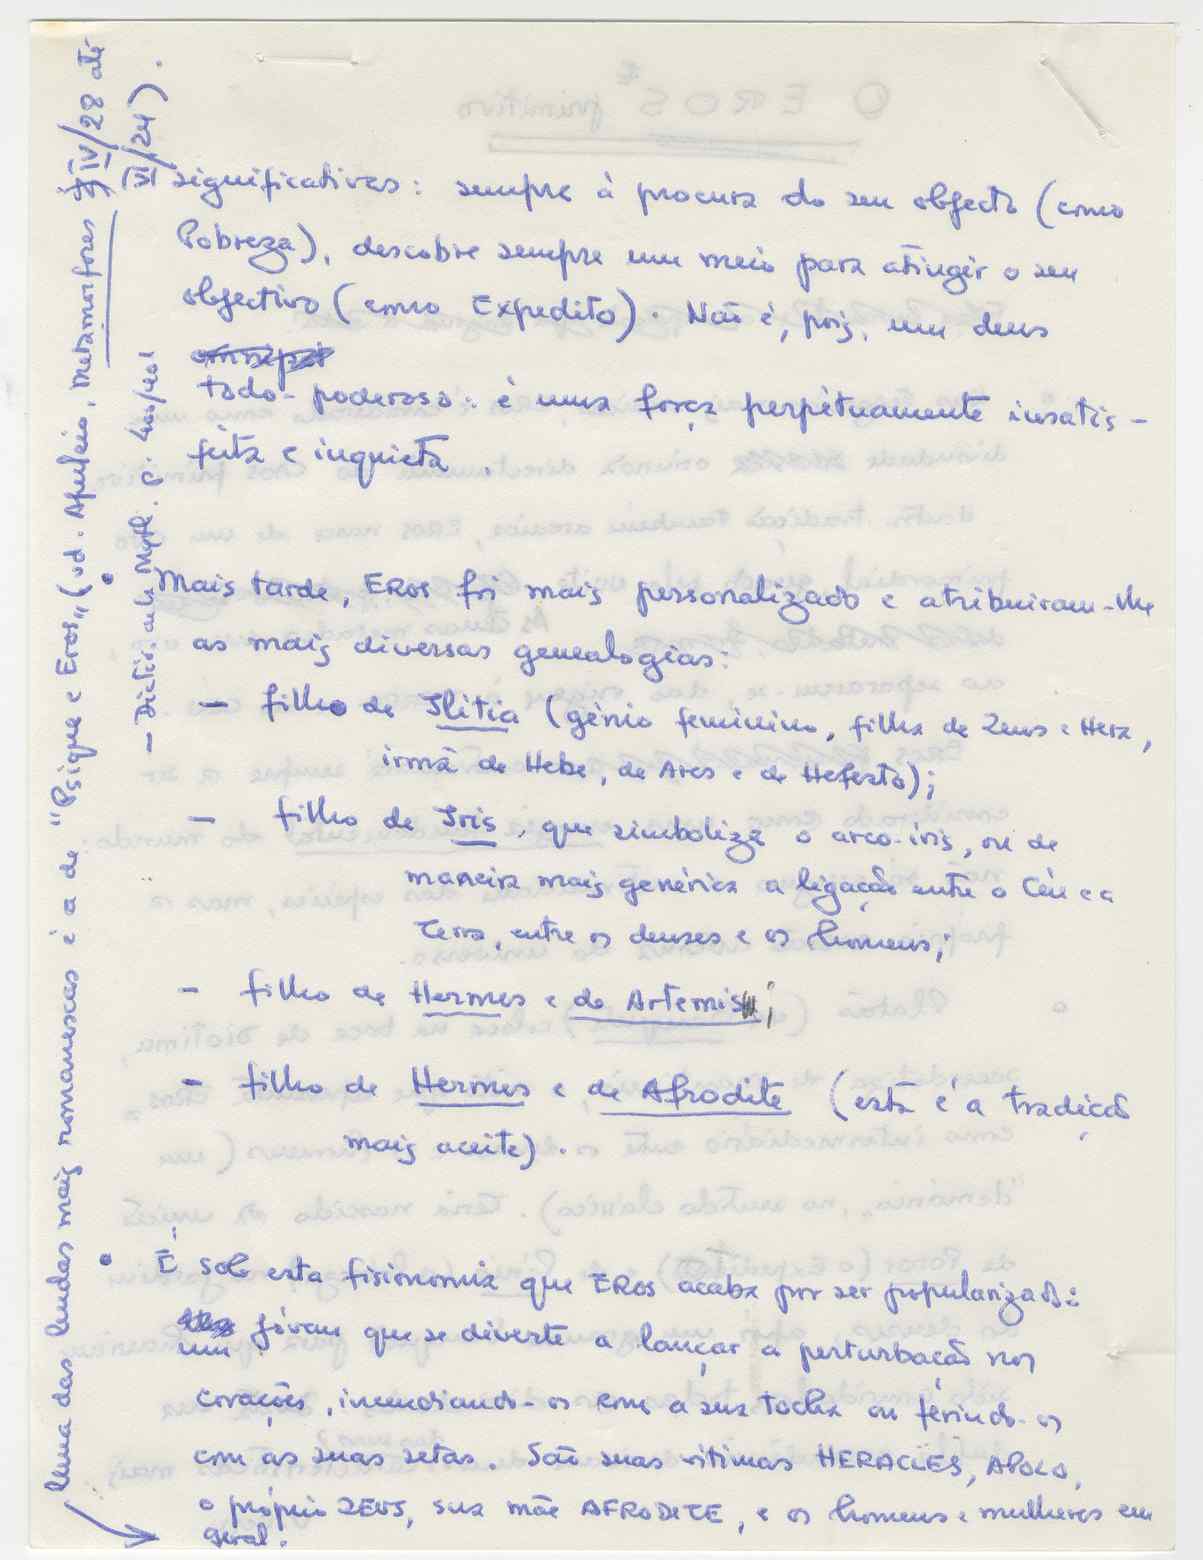 significativas: sempre à procura do seu objecto (como
Pobreza), descobre sempre um meio para atingir o seu
objectivo (como Expedito). Não é, pois, um deus
todo-poderoso: é uma força perpètuamente insatis-
feita e inquieta.
• Mais tarde, EROS foi mais personalizado e atribuiram-lhe
as mais diversas genealogias:
– filho de Ilítia (génio feminino, filha de Zeus e Hera,
irmã de Hebe, de Ares e de Hefesto);
– filho de Iris, que simboliza o arco-iris, ou de
maneira mais genérica a ligação entre o Céu e a
Terra, entre os deuses e os homens;
– filho de Hermes e de Artemis;
– filho de Hermes e de Afrodite (esta é a tradição
mais aceite).
• É sob esta fisionomia que EROS acaba por ser popularizado:
um jóvem que se diverte a lançar a perturbação nos
corações, incendiando-os com a sua tocha ou ferindo-os
com as suas setas. São suas vítimas HERACLES, APOLO,
o próprio ZEUS, sua mãe AFRODITE, e os homens e mulheres em
geral.
Uma das lendas mais romanescas é a de "Psique e Eros" (vd. Apuleio, Metamorfoses IV/28 até
VI/24).
– Dictio. de la Myth. p.
O EROS primitivo